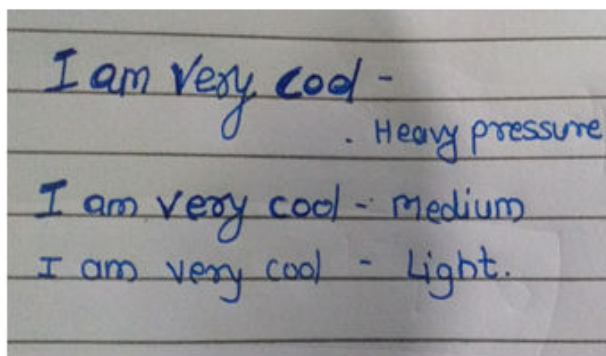 I am very cool -
. Heavy pressure
I am very cool - medium
I am very cool - Light.